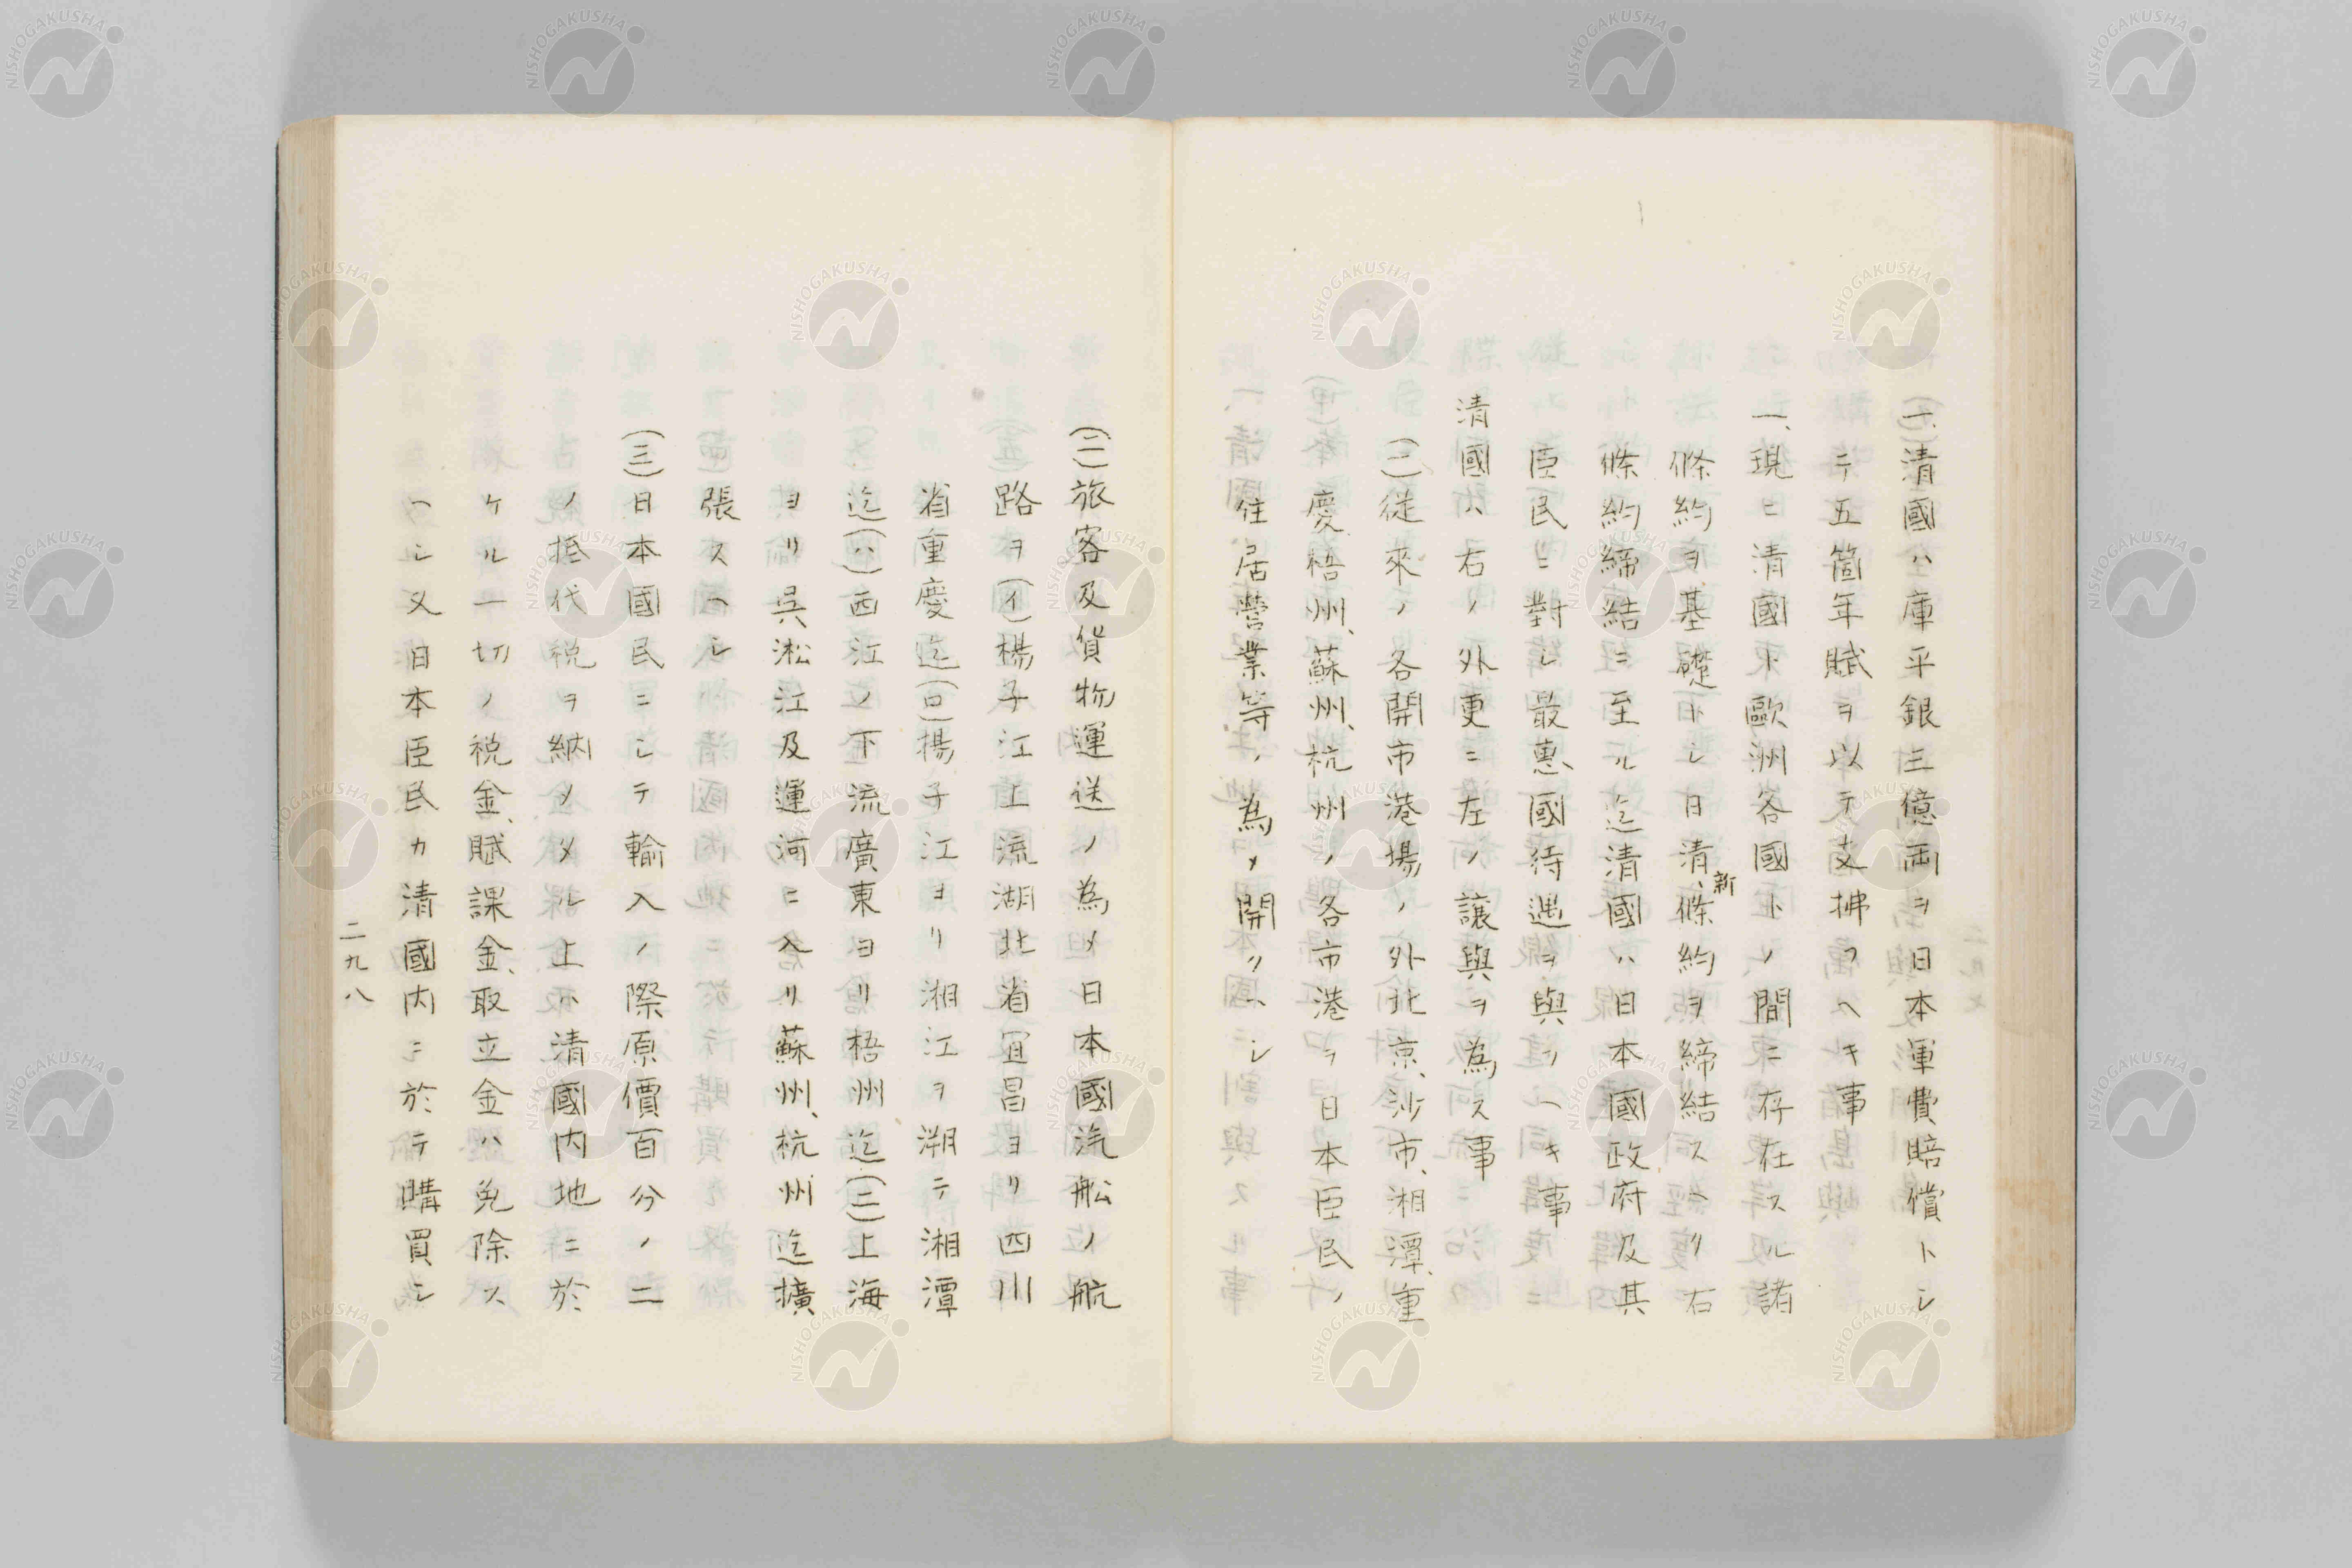 一、清國ハ庫平銀三億両ヲ日本軍費賠償トシ
テ五箇年賦ヲ以テ支拂フヘキ事
一、現ニ清國ト歐洲各國トノ間ニ存在スル諸
條約ヲ基礎トシ日清新條約ヲ締結スヘリ右
條約締結ニ至ル迄清國ハ日本國政府及其
臣民ニ對シ最惠國待遇ヲ與フヘキ事
清國ハ右ノ外更ニ左ノ讓與ヲ為ス事
(一)從來ノ各開市港場ノ外北京、沙市、湘潭、重
慶、梧州、蘇州、杭州ノ各市港ヲ日本臣民ノ
住居營業等ノ為メ開クヘシ
(二)旅客及貨物運送ノ為メ日本國汽舩ノ航
路ヲ(イ)楊子江上流湖北省宜昌ヨリ四川
省重慶迄(ロ)揚子江ヨリ湘江ヲ溯テ湘潭
迄(ハ)西江ノ下流廣東ヨリ梧州迄(ニ)上海
ヨリ吳淞江及運河ニ入リ蘇州、杭州迄擴
張スヘシ
(三)日本國民ニシテ輸入ノ際原價百分ノ二
ノ抵代税ヲ納メタル上ハ清國内地ニ於
ケル一切ノ税金、賦課金、取立金ハ免除ス
ヘシ又日本臣民カ清國内ニ於テ購買シ
二九八
NISHOGAKUSHA